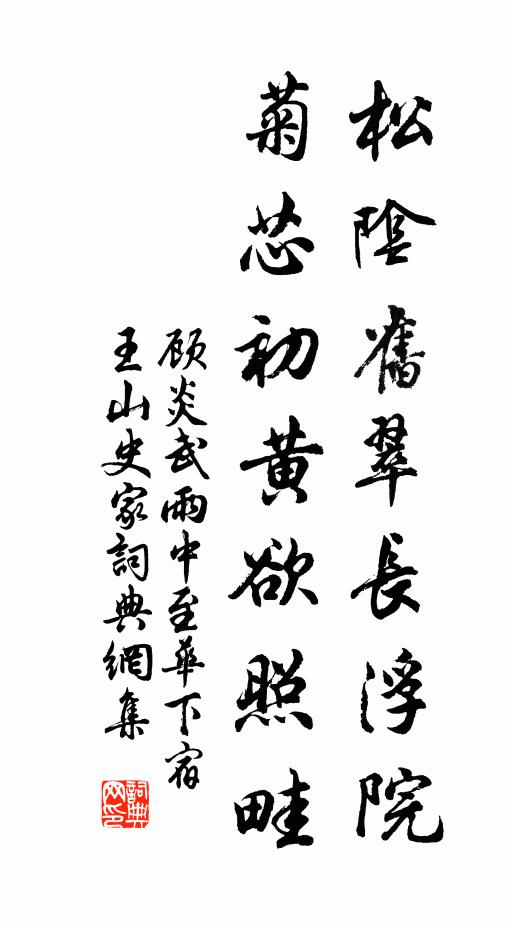 松陰舊翠長浮院
菊芯初黄欲照畦
顾炎武雨中至華下宿
王山史家詞典網集
詞典网印